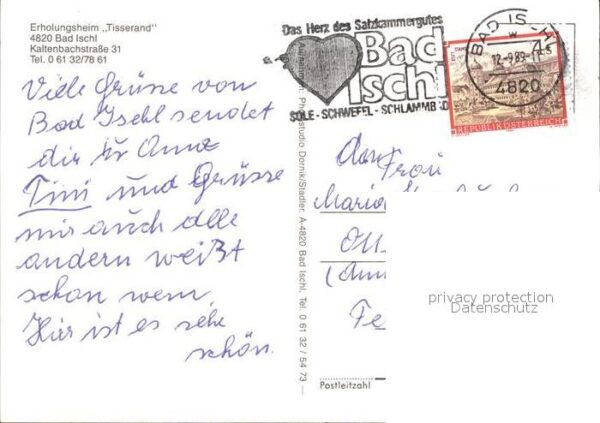 Erholungsheim „Tisserand"
4820 Bad Ischl
Kaltenbachstraße 31
Tel. 0 61 32/78 61
Viele Grüsse von
Bad Ischl sendet
dir
Tini und Grüsse
mir auch alle
andern weißt
schon wem
Hier ist es sehr
schön.
Das Herz des Salzkammergutes
Bad
Ischl
SOLE - SCHWEFEL - SCHLAMMBAD
BAD ISCHL
12.-9.89
4820
REPUBLIK ÖSTERREICH
Dornik/Stadler, A-4820 Bad Ischl, Tel. 0 61 32 / 54 73
Frau
Maria
Postleitzahl
privacy protection
Datenschutz